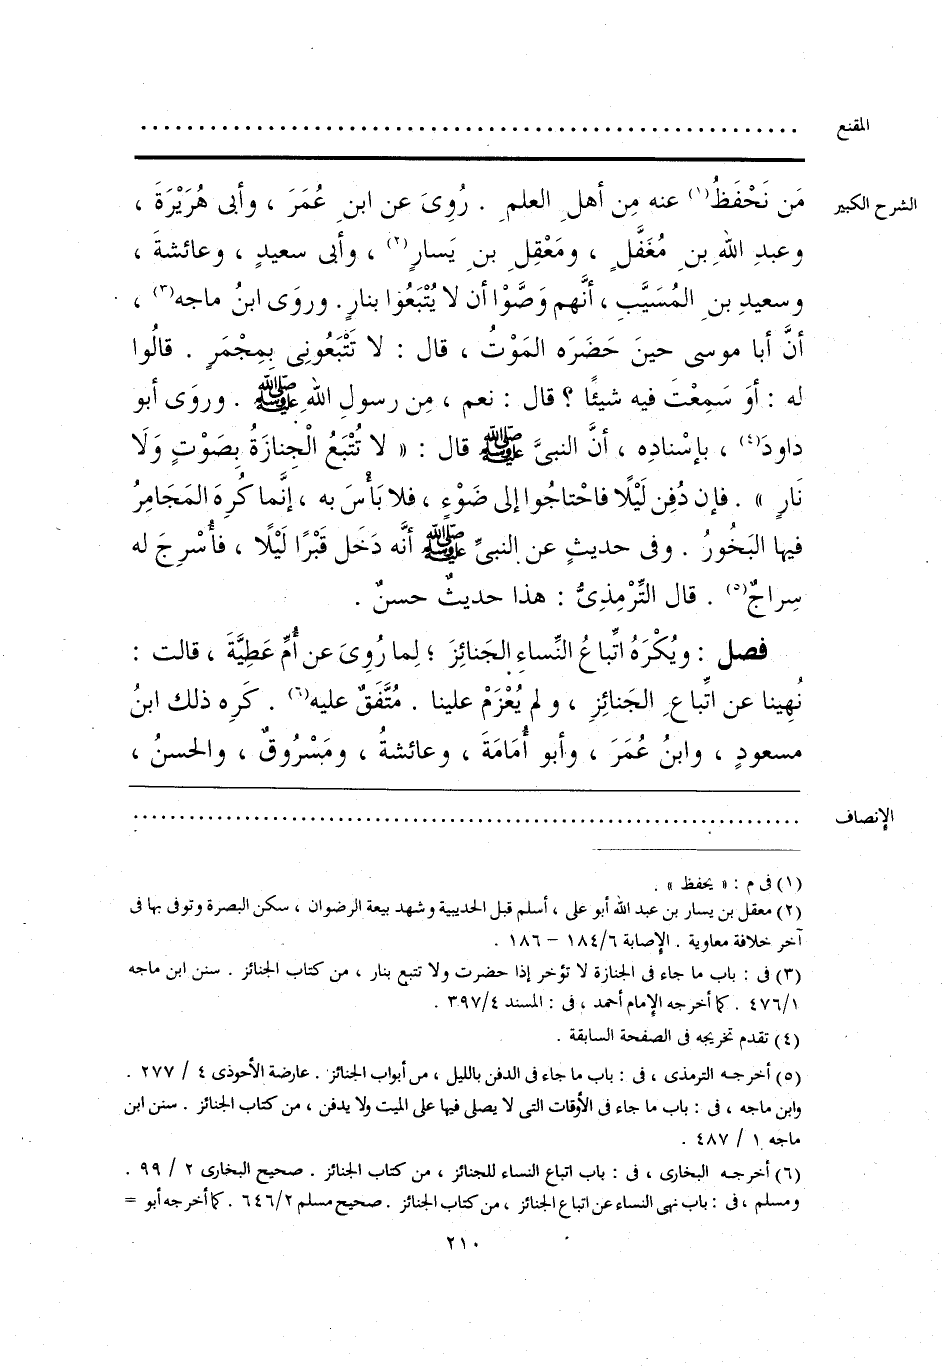 المقنع ............................................................
الشرح الكبير مَن نَحْفَظُ(١) عنه مِن أهلِ العلمِ . رُوِىَ عن ابنِ عُمَرَ ، وأبى هُرَيْرَةَ ،
وعبدِ اللهِ بنِ مُغَفَّلٍ ، ومَعْقِلِ بنِ يَسارٍ(٢) ، وأبى سعيدٍ ، وعائشةَ ،
وسعيدِ بنِ المُسَيَّبِ ، أنَّهم وَصَّوْا أن لا يُتْبَعُوا بنارٍ . وروَى ابنُ ماجه(٣) ،
أنَّ أبا موسى حينَ حَضَرَه المَوْتُ ، قال : لا تَتْبَعُونِى بِمِجْمَرٍ . قالُوا
له : أوَ سَمِعْتَ فيه شيئًا ؟ قال : نعم ، مِن رسولِ اللهِ ﷺ . وروَى أبو
داودَ(٤) ، بإسْنادِه ، أنَّ النبىَّ ﷺ قال : « لا تُتْبَعُ الْجِنازَةُ بِصَوْتٍ وَلَا
نَارٍ » . فإن دُفِن لَيْلًا فاحْتاجُوا إلى ضَوْءٍ ، فلا بَأْسَ به ، إنَّما كُرِهَ المَجَامِرُ
فيها البَخُورُ . وفى حديثٍ عن النبىِّ ﷺ أنَّه دَخَل قَبْرًا لَيْلًا ، فأُسْرِجَ له
سِراجٌ(٥) . قال التِّرْمِذِىُّ : هذا حديثٌ حسنٌ .
فصل : ويُكْرَهُ اتِّباعُ النِّساءِ الجَنائِزَ ؛ لِما رُوِىَ عن أُمِّ عَطِيَّةَ ، قالت :
نُهِينا عن اتِّباعِ الجَنائِزِ ، ولم يُعْزَمْ علينا . مُتَّفَقٌ عليه(٦) . كَرِه ذلك ابنُ
مسعودٍ ، وابنُ عُمَرَ ، وأبو أُمَامَةَ ، وعائشةُ ، ومَسْرُوقٌ ، والحسنُ ،
الإنصاف ............................................................
(١) فى م : « يحفظ » .
(٢) معقل بن يسار بن عبد الله أبو على ، أسلم قبل الحديبية وشهد بيعة الرضوان ، سكن البصرة وتوفى بها فى
آخر خلافة معاوية . الإصابة ١٨٤/٦ – ١٨٦ .
(٣) فى : باب ما جاء فى الجنازة لا تؤخر إذا حضرت ولا تتبع بنار ، من كتاب الجنائز . سنن ابن ماجه
٤٧٦/١ . كما أخرجه الإمام أحمد ، فى : المسند ٣٩٧/٤ .
(٤) تقدم تخريجه فى الصفحة السابقة .
(٥) أخرجه الترمذى ، فى : باب ما جاء فى الدفن بالليل ، من أبواب الجنائز . عارضة الأحوذى ٤ / ٢٧٧ .
وابن ماجه ، فى : باب ما جاء فى الأوقات التى لا يصلى فيها على الميت ولا يدفن ، من كتاب الجنائز . سنن ابن
ماجه ١ / ٤٨٧ .
(٦) أخرجه البخارى ، فى : باب اتباع النساء للجنائز ، من كتاب الجنائز . صحيح البخارى ٢ / ٩٩ .
ومسلم ، فى : باب نهى النساء عن اتباع الجنائز ، من كتاب الجنائز . صحيح مسلم ٦٤٦/٢ . كما أخرجه أبو =
٢١٠